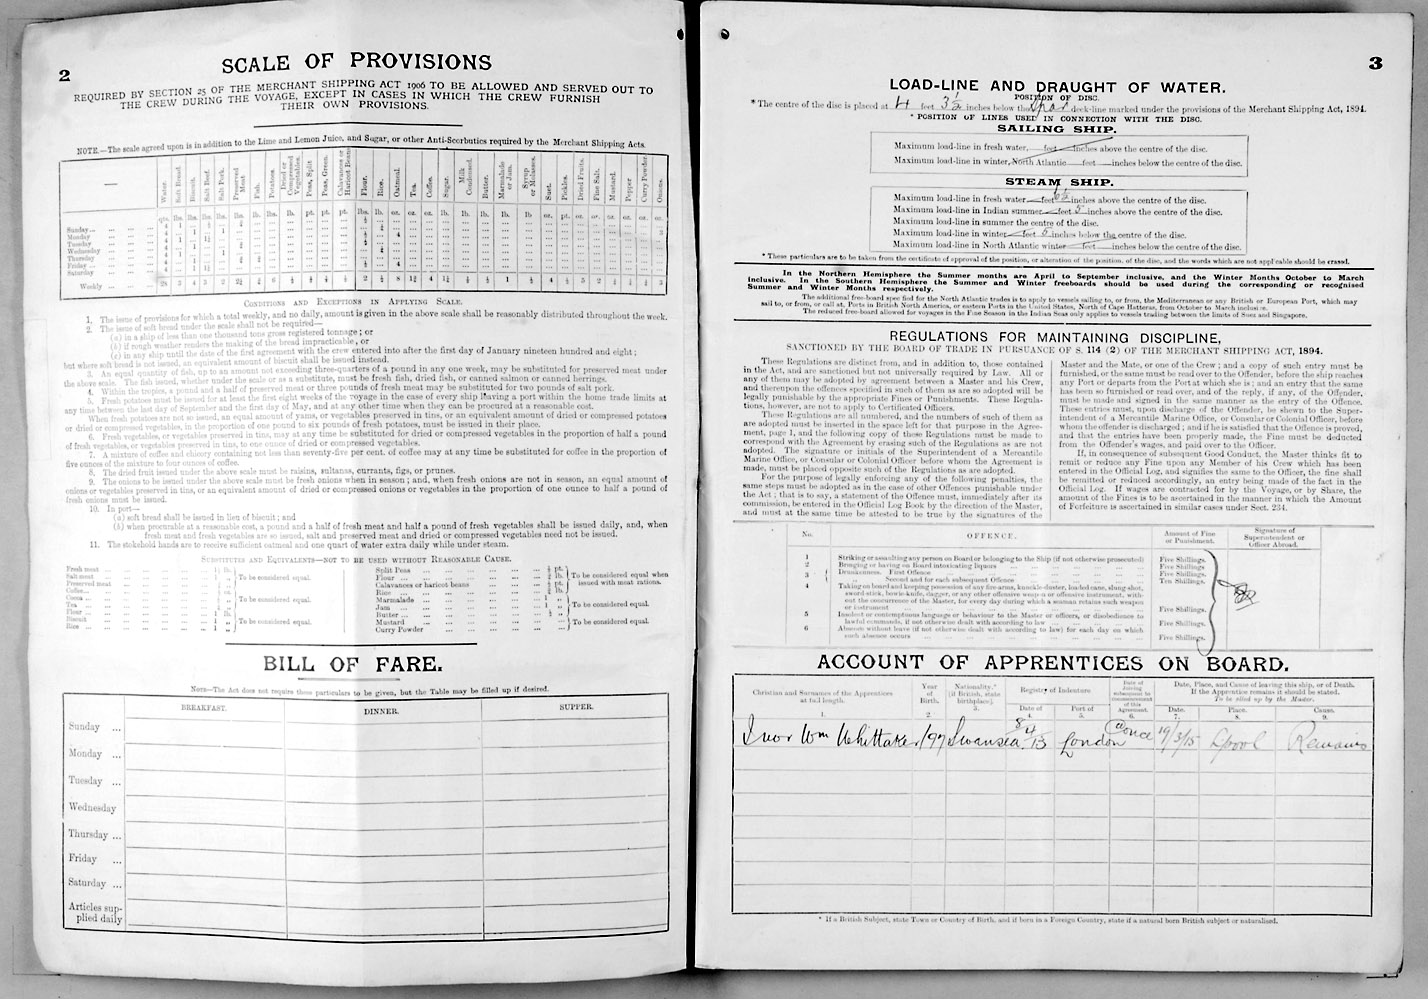 2
SCALE OF PROVISIONS
REQUIRED BY SECTION 25 OF THE MERCHANT SHIPPING ACT 1906 TO BE ALLOWED AND SERVED OUT TO
THE CREW DURING THE VOYAGE, EXCEPT IN CASES IN WHICH THE CREW FURNISH
THEIR OWN PROVISIONS.
NOTE.—The scale agreed upon is in addition to the Lime and Lemon Juice, and Sugar, or other Anti-Scorbutics required by the Merchant Shipping Acts.
Water. Soft Bread. Biscuit. Salt Beef. Salt Pork. Preserved Meat. Fish. Potatoes. Dried or Compressed Vegetables. Peas, Split Peas, Green. Calavances or Haricot Beans Flour. Rice. Oatmeal. Tea. Coffee. Sugar. Milk Condensed. Butter. Marmalade or Jam. Syrup or Molasses. Suet. Pickles. Dried Fruits. Fine Salt. Mustard. Pepper Curry Powder. Onions.
Sunday...
Monday
Tuesday
Wednesday
Thursday
Friday ...
Saturday
Weekly ...
CONDITIONS AND EXCEPTIONS IN APPLYING SCALE.
1. The issue of provisions for which a total weekly, and no daily, amount is given in the above scale shall be reasonably distributed throughout the week.
2. The issue of soft bread under the scale shall not be required—
(a) in a ship of less than one thousand tons gross registered tonnage; or
(b) if rough weather renders the making of the bread impracticable, or
(c) in any ship until the date of the first agreement with the crew entered into after the first day of January nineteen hundred and eight;
but where soft bread is not issued, an equivalent amount of biscuit shall be issued instead.
3. An equal quantity of fish, up to an amount not exceeding three-quarters of a pound in any one week, may be substituted for preserved meat under
the above scale. The fish issued, whether under the scale or as a substitute, must be fresh fish, dried fish, or canned salmon or canned herrings.
4. Within the tropics, a pound and a half of preserved meat or three pounds of fresh meat may be substituted for two pounds of salt pork.
5. Fresh potatoes must be issued for at least the first eight weeks of the voyage in the case of every ship leaving a port within the home trade limits at
any time between the last day of September and the first day of May, and at any other time when they can be procured at a reasonable cost.
When fresh potatoes are not issued, an equal amount of yams, or vegetables preserved in tins, or an equivalent amount of dried or compressed potatoes
or dried or compressed vegetables, in the proportion of one pound to six pounds of fresh potatoes, must be issued in their place.
6. Fresh vegetables, or vegetables preserved in tins, may at any time be substituted for dried or compressed vegetables in the proportion of half a pound
of fresh vegetables, or vegetables preserved in tins, to one ounce of dried or compressed vegetables.
7. A mixture of coffee and chicory containing not less than seventy-five per cent. of coffee may at any time be substituted for coffee in the proportion of
five ounces of the mixture to four ounces of coffee.
8. The dried fruit issued under the above scale must be raisins, sultanas, currants, figs, or prunes.
9. The onions to be issued under the above scale must be fresh onions when in season; and, when fresh onions are not in season, an equal amount of
onions or vegetables preserved in tins, or an equivalent amount of dried or compressed onions or vegetables in the proportion of one ounce to half a pound of
fresh onions must be issued.
10. In port—
(a) soft bread shall be issued in lieu of biscuit; and
(b) when procurable at a reasonable cost, a pound and a half of fresh meat and half a pound of fresh vegetables shall be issued daily, and, when
fresh meat and fresh vegetables are so issued, salt and preserved meat and dried or compressed vegetables need not be issued.
11. The stokehold hands are to receive sufficient oatmeal and one quart of water extra daily while under steam.
SUBSTITUTES AND EQUIVALENTS—NOT TO BE USED WITHOUT REASONABLE CAUSE.
Fresh meat
Salt meat
Preserved meat
To be considered equal.
Coffee
Cocoa
Tea
To be considered equal.
Flour
Biscuit
Rice
To be considered equal.
Split Peas
Flour
Calavances or haricot beans
Rice
To be considered equal when
issued with meat rations.
Marmalade
Jam
Butter
To be considered equal.
Mustard
Curry Powder
To be considered equal.
BILL OF FARE.
NOTE—The Act does not require these particulars to be given, but the Table may be filled up if desired.
BREAKFAST. DINNER. SUPPER.
Sunday ...
Monday ...
Tuesday ...
Wednesday
Thursday ...
Friday ...
Saturday ...
Articles sup-
plied daily
3
LOAD-LINE AND DRAUGHT OF WATER.
POSITION OF DISC.
* The centre of the disc is placed at 4 feet 3½ inches below the Spar deck-line marked under the provisions of the Merchant Shipping Act, 1894.
* POSITION OF LINES USED IN CONNECTION WITH THE DISC.
SAILING SHIP.
Maximum load-line in fresh water, feet inches above the centre of the disc.
Maximum load-line in winter, North Atlantic feet inches below the centre of the disc.
STEAM SHIP.
Maximum load-line in fresh water feet inches above the centre of the disc.
Maximum load-line in Indian summer feet 5 inches above the centre of the disc.
Maximum load-line in summer the centre of the disc.
Maximum load-line in winter feet 5 inches below the centre of the disc.
Maximum load-line in North Atlantic winter feet inches below the centre of the disc.
* These particulars are to be taken from the certificate of approval of the position, or alteration of the position, of the disc, and the words which are not applicable should be erased.
In the Northern Hemisphere the Summer months are April to September inclusive, and the Winter Months October to March
inclusive. In the Southern Hemisphere the Summer and Winter freeboards should be used during the corresponding or recognised
Summer and Winter Months respectively.
The additional free-board specified for the North Atlantic trades is to apply to vessels sailing to, or from, the Mediterranean or any British or European Port, which may
sail to, or from, or call at, Ports in British North America, or eastern Ports in the United States, North of Cape Hatteras, from October to March inclusive.
The reduced free-board allowed for voyages in the Fine Season in the Indian Seas only applies to vessels trading between the limits of Suez and Singapore.
REGULATIONS FOR MAINTAINING DISCIPLINE,
SANCTIONED BY THE BOARD OF TRADE IN PURSUANCE OF S. 114 (2) OF THE MERCHANT SHIPPING ACT, 1894.
These Regulations are distinct from, and in addition to, those contained
in the Act, and are sanctioned but not universally required by Law. All or
any of them may be adopted by agreement between a Master and his Crew,
and thereupon the offences specified in such of them as are so adopted will be
legally punishable by the appropriate Fines or Punishments. These Regula-
tions, however, are not to apply to Certificated Officers.
These Regulations are all numbered, and the numbers of such of them as
are adopted must be inserted in the space left for that purpose in the Agree-
ment, page 1, and the following copy of these Regulations must be made to
correspond with the Agreement by erasing such of the Regulations as are not
adopted. The signature or initials of the Superintendent of a Mercantile
Marine Office, or Consular or Colonial Officer before whom the Agreement is
made, must be placed opposite such of the Regulations as are adopted.
For the purpose of legally enforcing any of the following penalties, the
same steps must be adopted as in the case of other Offences punishable under
the Act; that is to say, a statement of the Offence must, immediately after its
commission, be entered in the Official Log Book by the direction of the Master,
and must at the same time be attested to be true by the signatures of the
Master and the Mate, or one of the Crew; and a copy of such entry must be
furnished, or the same must be read over to the Offender, before the ship reaches
any Port or departs from the Port at which she is; and an entry that the same
has been so furnished or read over, and of the reply, if any, of the Offender,
must be made and signed in the same manner as the entry of the Offence.
These entries must, upon discharge of the Offender, be shown to the Super-
intendent of a Mercantile Marine Office, or Consular or Colonial Officer, before
whom the offender is discharged; and if he is satisfied that the Offence is proved,
and that the entries have been properly made, the Fine must be deducted
from the Offender's wages, and paid over to the Officer.
If, in consequence of subsequent Good Conduct, the Master thinks fit to
remit or reduce any Fine upon any Member of his Crew which has been
entered in the Official Log, and signifies the same to the Officer, the fine shall
be remitted or reduced accordingly, an entry being made of the fact in the
Official Log. If wages are contracted for by the Voyage, or by Share, the
amount of the Fines is to be ascertained in the manner in which the Amount
of Forfeiture is ascertained in similar cases under Sect. 234.
No. OFFENCE. Amount of Fine or Punishment. Signature of Superintendent or Officer Abroad.
1 Striking or assaulting any person on Board or belonging to the Ship (if not otherwise prosecuted) Five Shillings.
2 Bringing or having on Board intoxicating liquors Five Shillings.
3 Drunkenness. First Offence Five Shillings.
Second and for each subsequent Offence Ten Shillings.
4 Taking on board and keeping possession of any fire-arms, knuckle-duster, loaded cane, slung-shot,
sword-stick, bowie-knife, dagger, or any other offensive weapon or offensive instrument, with-
out the concurrence of the Master, for every day during which a seaman retains such weapon
or instrument Five Shillings.
5 Insolent or contemptuous language or behaviour to the Master or officers, or disobedience to
lawful commands, if not otherwise dealt with according to law Five Shillings.
6 Absence without leave (if not otherwise dealt with according to law) for each day on which
such absence occurs Five Shillings.
ACCOUNT OF APPRENTICES ON BOARD.
Christian and Surnames of the Apprentices at full length. 1. Year of Birth. 2 Nationality.* (if British, state birthplace). 3. Registry of Indenture Date of 4. Port of 5. Date of Joining subsequent to commencement of this Agreement. 6. Date, Place, and Cause of leaving this ship, or of Death. If the Apprentice remains it should be stated. To be filled up by the Master. Date. 7. Place. 8. Cause. 9.
Ivor Wm Whittaker 197 Swansea 8/4/13 London @ once 19/3/15 Lpool Remains
* If a British Subject, state Town or Country of Birth, and if born in a Foreign Country, state if a natural born British subject or naturalised.